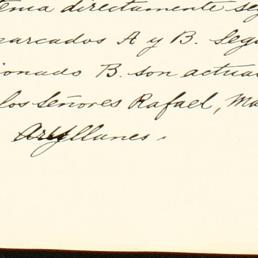 tenia directamente seg
marcados A y B. Segu
ionado B. son actua
los Señores Rafael, Ma
Arellanes.